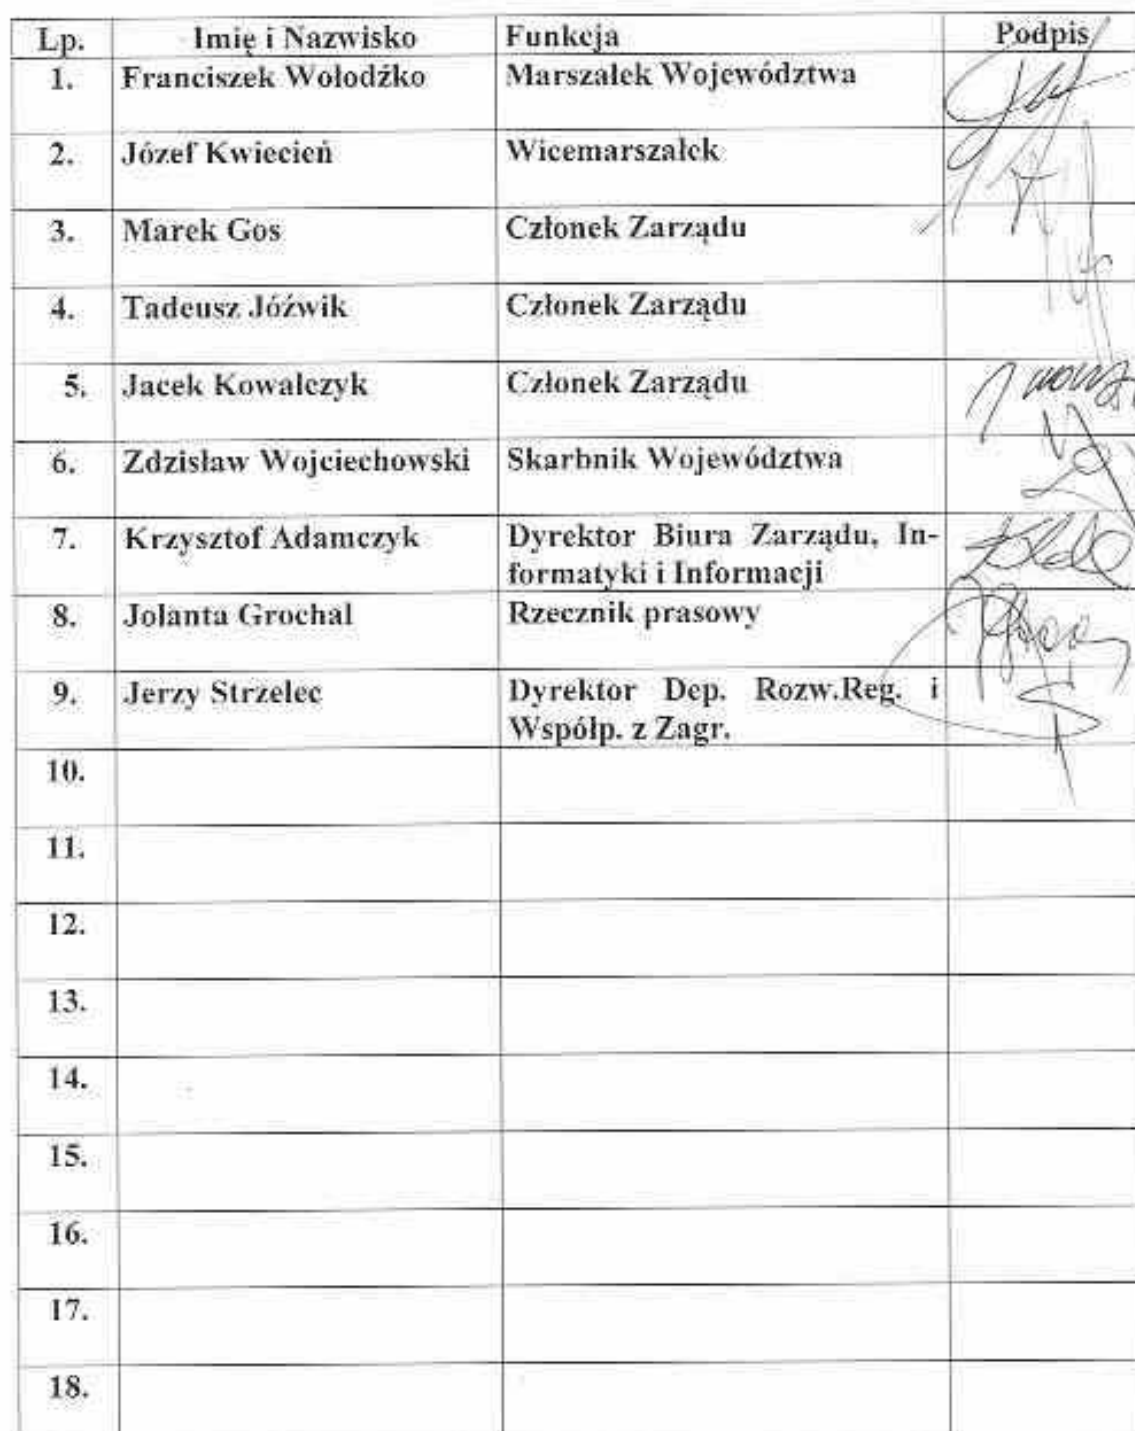 Lp. Imię i Nazwisko Funkcja Podpis
1. Franciszek Wołodźko Marszałek Województwa
2. Józef Kwiecień Wicemarszałek
3. Marek Gos Członek Zarządu
4. Tadeusz Jóźwik Członek Zarządu
5. Jacek Kowalczyk Członek Zarządu
6. Zdzisław Wojciechowski Skarbnik Województwa
7. Krzysztof Adamczyk Dyrektor Biura Zarządu, In-
formatyki i Informacji
8. Jolanta Grochal Rzecznik prasowy
9. Jerzy Strzelec Dyrektor Dep. Rozw.Reg. i
Współp. z Zagr.
10.
11.
12.
13.
14.
15.
16.
17.
18.